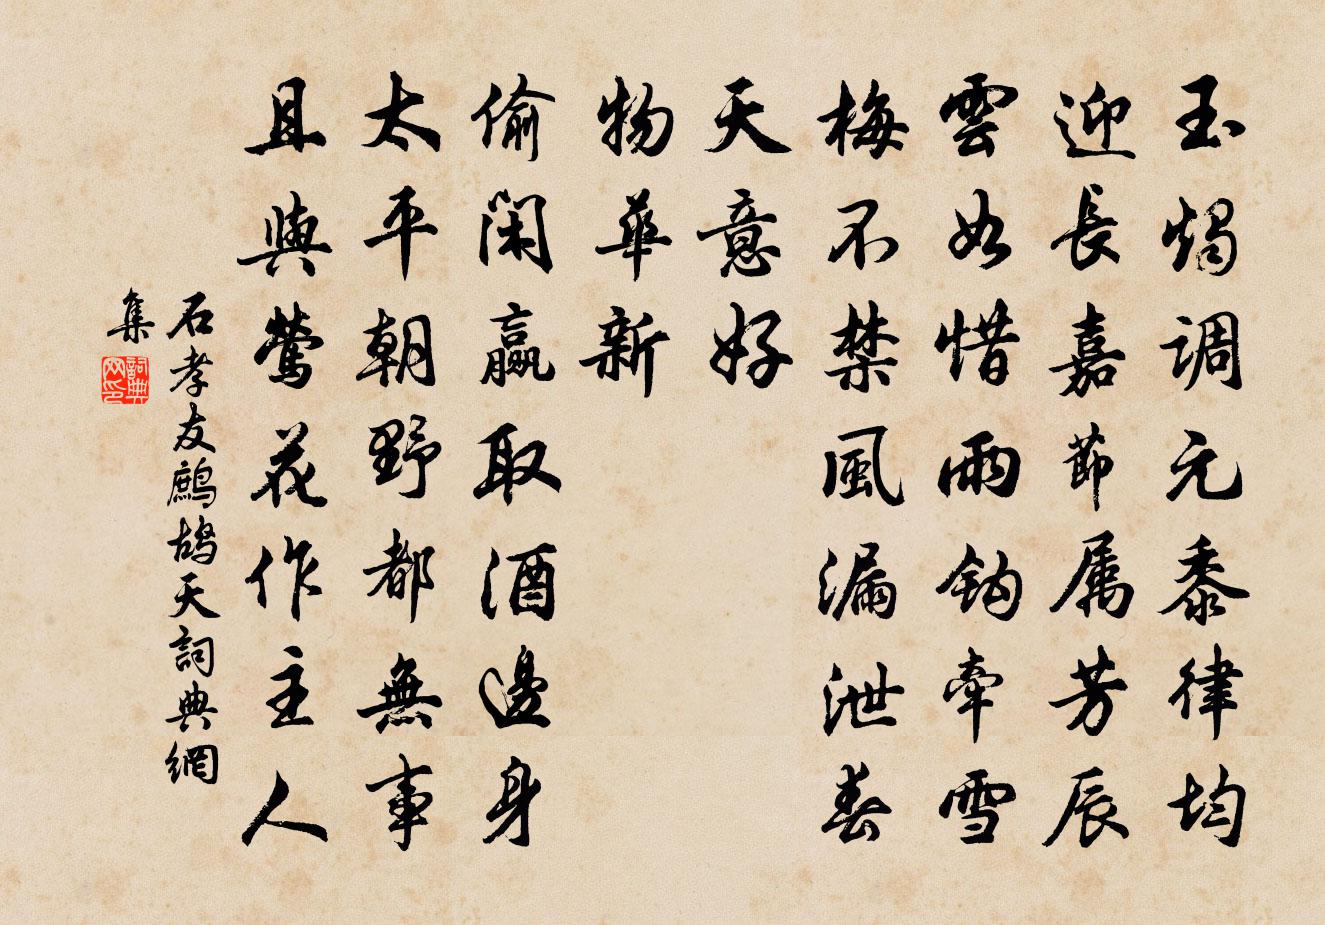 玉燭調元黍律均
迎長嘉節属芳辰
雲如惜雨鈎牽雪
梅不禁風漏泄春
天意好
物華新
偷閑贏取酒邊身
太平朝野都無事
且與鶯花作主人
石孝友鷓鴣天詞典網
集
詞典網印